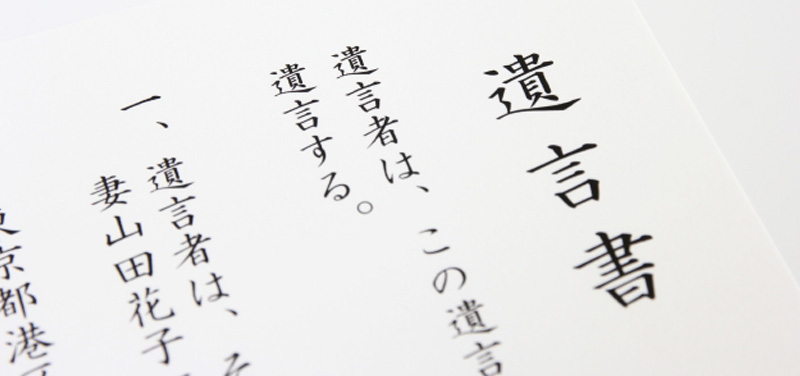 遺言書
遺言者は、この遺言
遺言する。
一、遺言者は、そ
妻山田花子
京都港